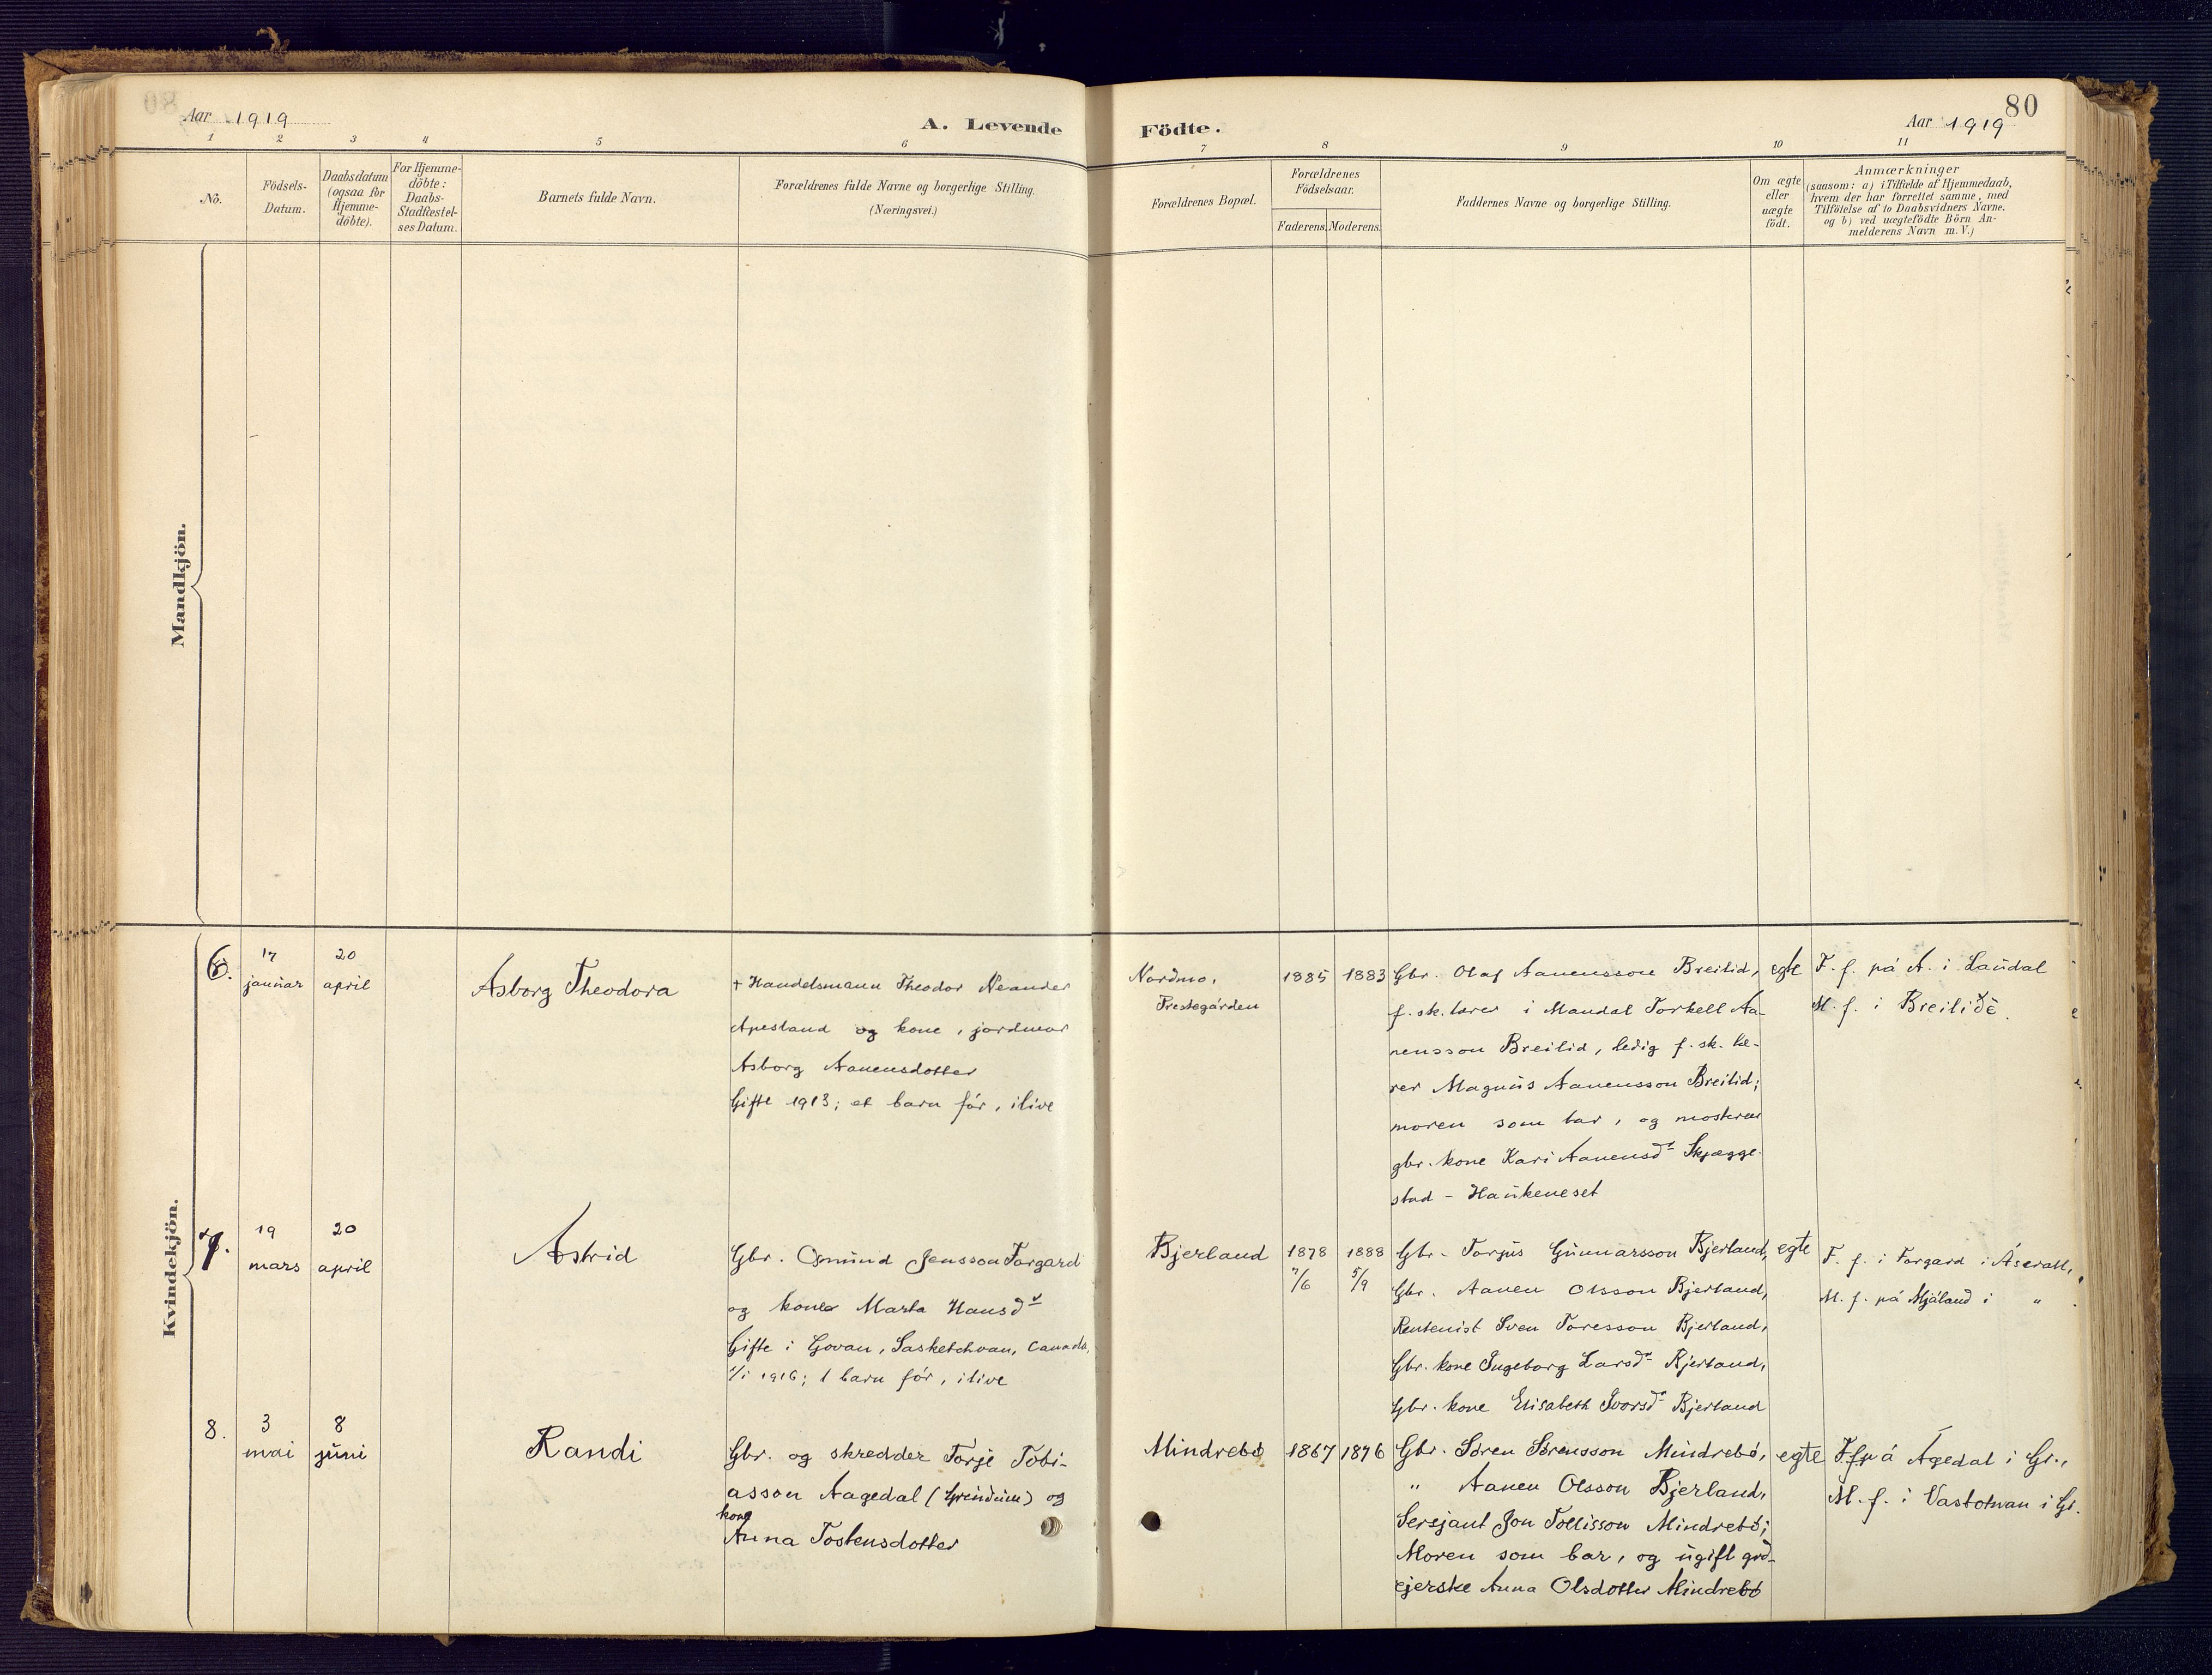 80
Aar 1919
A. Levende Födte.
Aar 1919
1 2 3 4 5 6 7 8 9 10 11
No.
Födsels-
Datum.
Daabsdatum
(ogsaa for
Hjemme-
döbte).
For Hjemme-
döbte:
Daabs-
Stadfæstel-
ses Datum.
Barnets fulde Navn.
Forældrenes fulde Navne og borgerlige Stilling.
(Næringsvei.)
Forældrenes Bopæl.
Forældrenes
Födselsaar.
Faderens. Moderens.
Faddernes Navne og borgerlige Stilling.
Om ægte
eller
uægte
födt.
Anmærkninger
(saasom: a) i Tilfælde af Hjemmedaab,
hvem der har forrettet samme, med
Tilföielse af to Daabsvidners Navne.
og b) ved uægtefödte Börn An-
melderens Navn m. V.)
Mandkjön.
Kvindekjön.
6.
17
januar
20
april
Asborg Theodora
+ Handelsmann Theodor Neander
Apesland og kone, jordmor
Asborg Aanensdotter
Gifte 1913; et barn før, ilive
Nordmo,
Prestegården
1885
1883
Gbr. Olaf Aanensson Breilid,
f. sk. lærer i Mandal Torkell Aa-
nensson Breilid, ledig f. sk. læ-
rer Magnus Aanensson Breilid;
moren som bar, og mosteren
gbr. kone Kari Aanensdr Skjægge-
stad - Haukeneset
egte
F. f. på A. i Laudal
M. f. i Breilid
7.
19
mars
20
april
Astrid
Gbr. Osmund Jensson Forgard
og kone Marta Hansdr
Gifte i Govan, Sasketchvan, Canada,
1/1 1916; 1 barn før, ilive
Bjerland
1878
7/6
1888
5/9
Gbr. Torjus Gunnarsson Bjerland,
Gbr. Aanen Olsson Bjerland,
Rentenist Sven Toresson Bjerland,
Gbr. kone Ingeborg Larsdr Bjerland,
Gbr. kone Elisabeth Ivarsdr Bjerland
egte
F. f. i Forgard i Åseral,
M. f. på Mjåland i "
8.
3
mai
8
juni
Randi
Gbr. og skredder Torje Tobi-
asson Aagedal (Greindum) og
kone
Anna Tostensdotter
Mindrebø
1867
1876
Gbr. Søren Sørensson Mindrebø,
" Aanen Olsson Bjerland,
Sersjant Jon Tollisson Mindrebø;
Moren som bar, og ugift grd-
ejerske Anna Olsdotter Mindrebø
egte
F. f. på Ågedal i Gr.,
M. f. i Vastolvan i Gr.